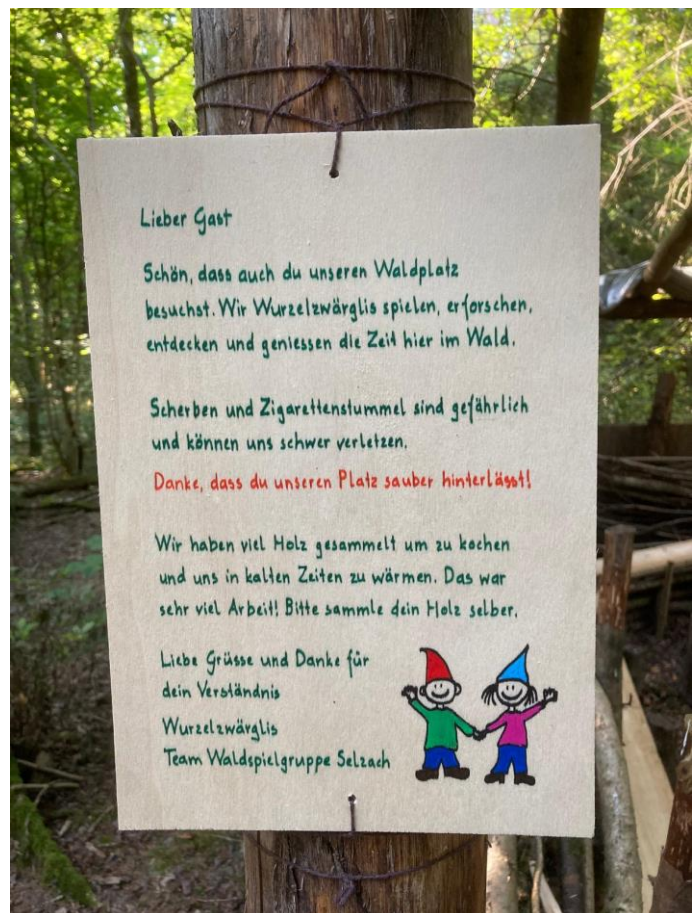 Lieber Gast
Schön, dass auch du unseren Waldplatz
besuchst. Wir Wurzelzwärglis spielen, erforschen,
entdecken und geniessen die Zeit hier im Wald.
Scherben und Zigarettenstummel sind gefährlich
und können uns schwer verletzen.
Danke, dass du unseren Platz sauber hinterlässt!
Wir haben viel Holz gesammelt um zu kochen
und uns in kalten Zeiten zu wärmen. Das war
sehr viel Arbeit! Bitte sammle dein Holz selber.
Liebe Grüsse und Danke für
dein Verständnis
Wurzelzwärglis
Team Waldspielgruppe Selzach